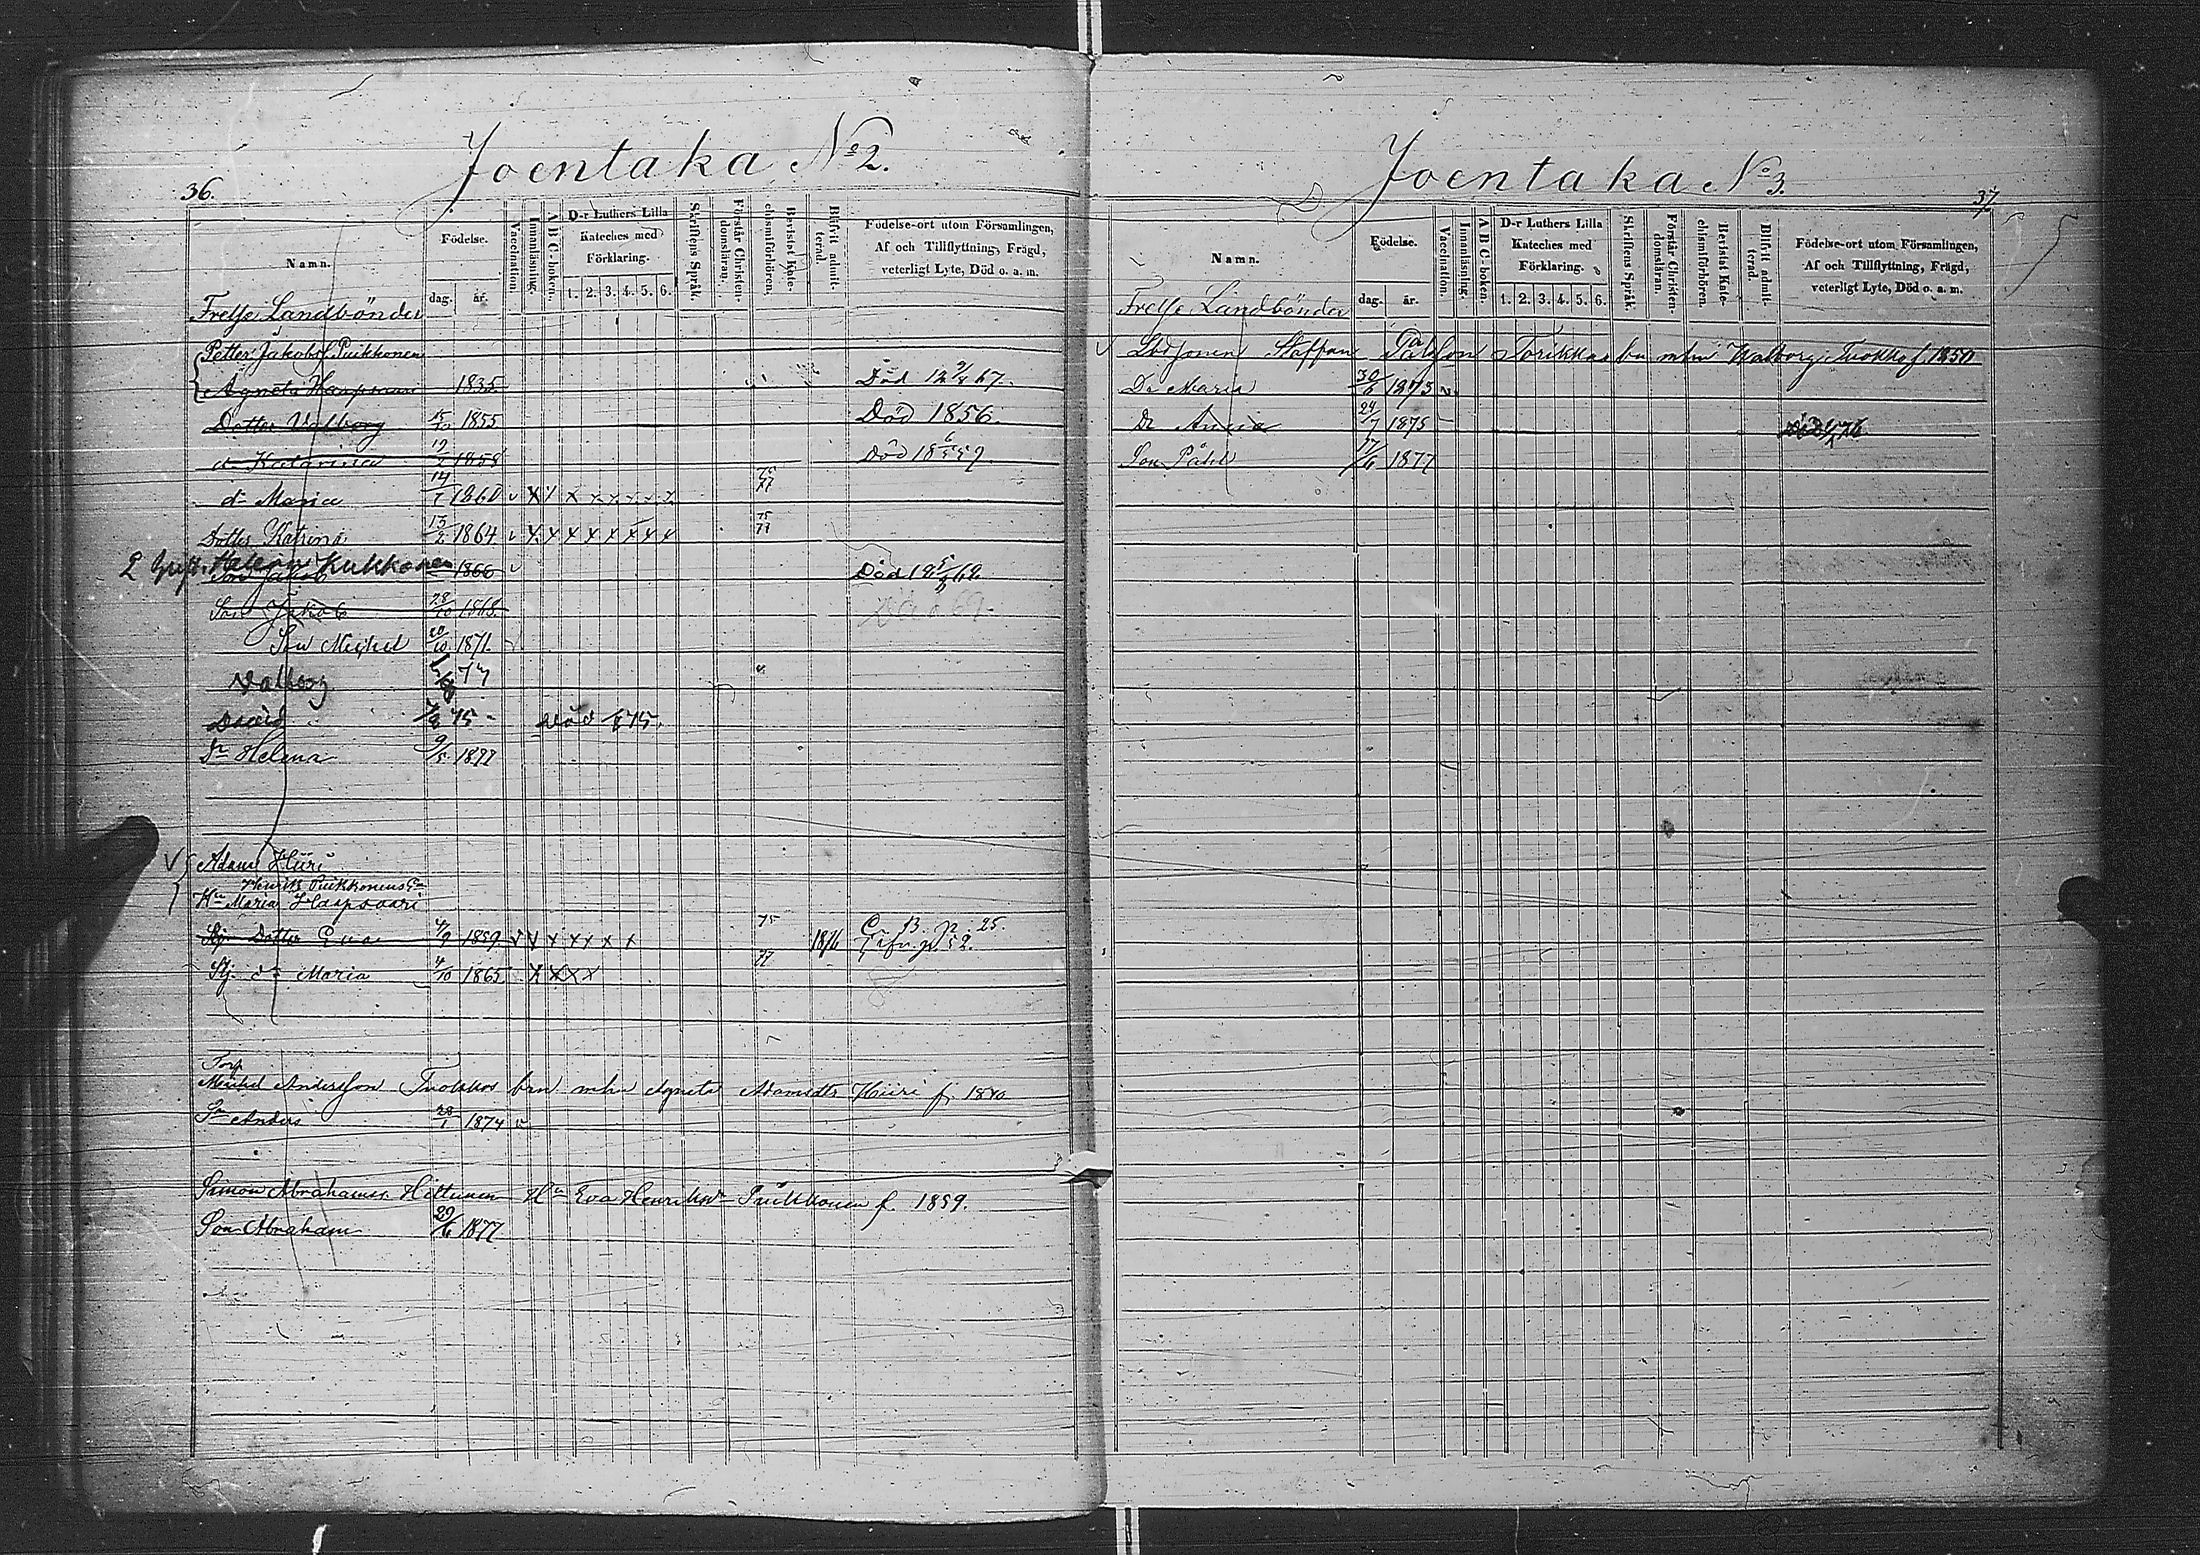 Joentaka No 2.
36.
Namn.
Födelse.
dag. år.
Vaccination.
Innanläsning.
A B C-boken.
D-r Luthers Lilla
Kateches med
Förklaring.
1. 2. 3. 4. 5. 6.
Skriftens Språk.
Förstår Christendomsläran.
Bevistat Katechismiförhören.
Blifvit admitterad.
Födelse-ort utom Församlingen,
Af och Tillflyttning, Frägd,
veterligt Lyte, Död o. a. m.
Frelse Landbönder
Petter Jakobss. Puikkonen
Agneta Haapsaari 1835 Död 12 9/8 67.
Dotter Valborg 15/10 1855 Död 1856.
d- Katarina 1858 Död 18 6/5 59
d- Maria 14/1 1860 v x x x x x x x x 75 77
Dotter Katrina 13/2 1864 v x x x x x x x x 75 77
2 gift. Helena Kukkonen
Son Jakob 1866 v
Son Jakob 28/10 1868
Son Michel 20/10 1871.
Valborg
David 75 - Död 75.
Dr Helena 9/5 1877
Adam Hiiri
Henrik Puikkonens
Hu Maria Haapsaari
Stj. Dotter Eva 4/9 1859 v x x x x x x 75 1876
Stj. d- Maria 4/10 1865 x x x x 77
Torp
Michel Andersson Tuokkos brn mhu Agneta Adamsdtr Hiiri f. 1840
Sn Anders 28/1 1874 v
Simon Abrahamss. Hiltunen Hu Eva Henriksdr Puikkonen f. 1859.
Son Abraham 29/6 1877
Joentaka No 3.
37
Namn.
Födelse.
dag. år.
Vaccination.
Innanläsning.
A B C-boken.
D-r Luthers Lilla
Kateches med
Förklaring.
1. 2. 3. 4. 5. 6.
Skriftens Språk.
Förstår Christendomsläran.
Bevistat Katechismiförhören.
Blifvit admitterad.
Födelse-ort utom Församlingen,
Af och Tillflyttning, Frägd,
veterligt Lyte, Död o. a. m.
Frelse Landbönder
Staffan Torikkas mhu Walborg Tuokko f. 1850
Dr Maria 30/6 1873
Dr Anna 24/7 1875
Son Påhl 17/6 1877